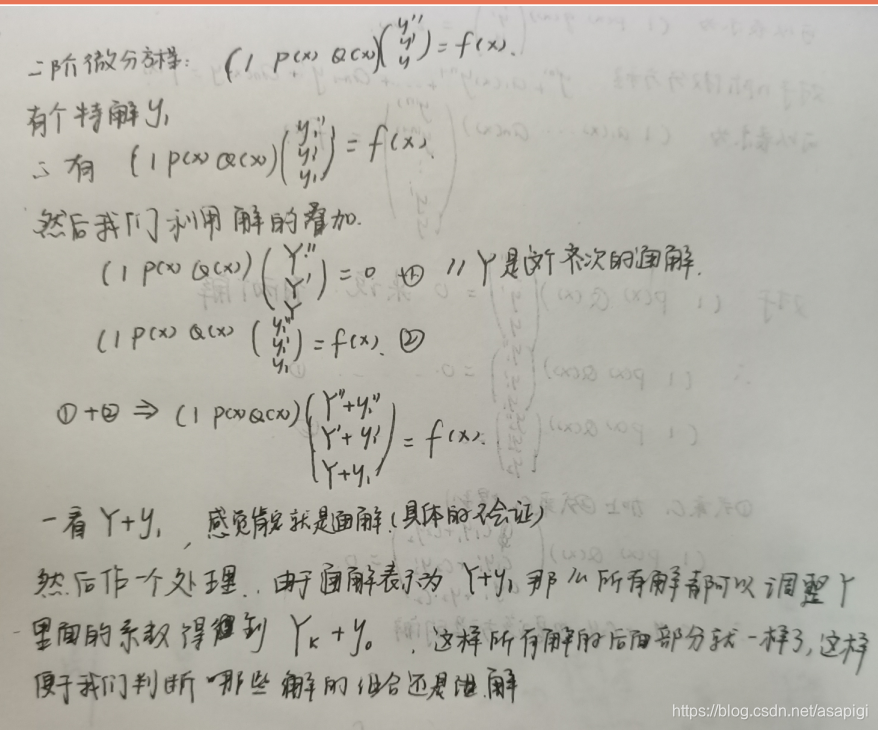 二阶微分方程: (1 P(x) Q(x)) (y'' y' y) = f(x).
有个特解 y₁
∴ 有 (1 P(x) Q(x)) (y₁'' y₁' y₁) = f(x).
然后我们利用解的叠加.
(1 P(x) Q(x)) (Y'' Y' Y) = 0 ① // Y是这个齐次的通解.
(1 P(x) Q(x) (y₁'' y₁' y₁) = f(x). ②
①+② ⇒ (1 P(x) Q(x)) (Y''+y₁'' Y'+y₁' Y+y₁) = f(x).
一看 Y+y₁, 感觉肯定就是通解.(具体的不会证)
然后作一个处理.. 由于通解表示为 Y+y₁ 那么所有解都可以调整Y
里面的系数得到 Yₖ+y₀, 这样所有解的后面部分就一样了,这样
便于我们判断哪些解的组合还是通解
https://blog.csdn.net/asapigi